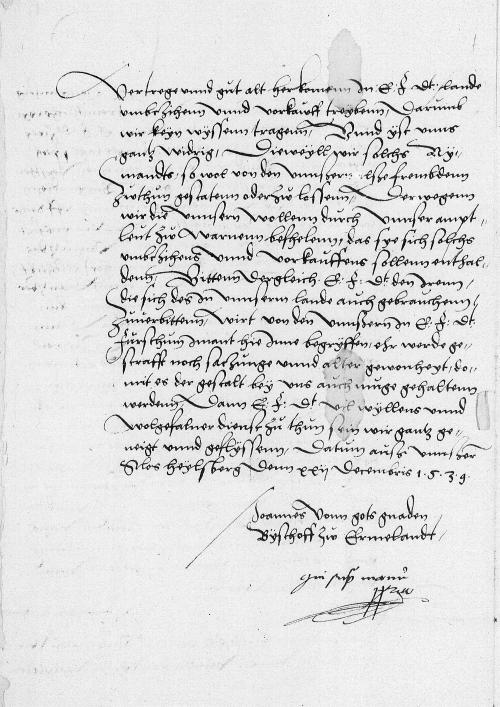 Vertrege vnnd gut alt herkomenn In E. F. Dt. lande
vmbczihenn vnnd vorkauff treybenn, Darumb
wir keyn wyssenn tragenn, Vnnd yst vnns
gantz widrig, Dieweyll wir solchs Ny-
mandts, so wol von den vnnsern alsze frembdenn
zwthun gestatenn oder zw lossenn, Derwegenn
wir die vnnsern wollenn durch vnnser ampt-
leut zw warnenn befhelenn, das sye sich solchs
vmbczihens vnnd vorkauffens sollenn enthal-
denn, Bittenn dergleich E. F. Dt. den Irenn,
die sich des In vnnserm lande auch gebrauchenn,
Zuuerbittenn, wirt von den vnnsern In E. F. Dt.
Furschun imant hie Inne begryffen, ehr werde ge-
strafft noch satzunge vnnd alter gewonheyt, do-
mit es der gestalt bey vns auch muge gehaltenn
werdenn, Dann E. F. Dt. vil wyllens vnnd
wolgefalner dienst zu thun sein wir gantz ge-
neigt vnnd geflyssenn, Datum ausz vnnserm
Slos Heylsberg Denn xxij Decembris 1.5.3.9.
Joannes Vonn gots gnaden
Byschoff zw Ermelandt
manu